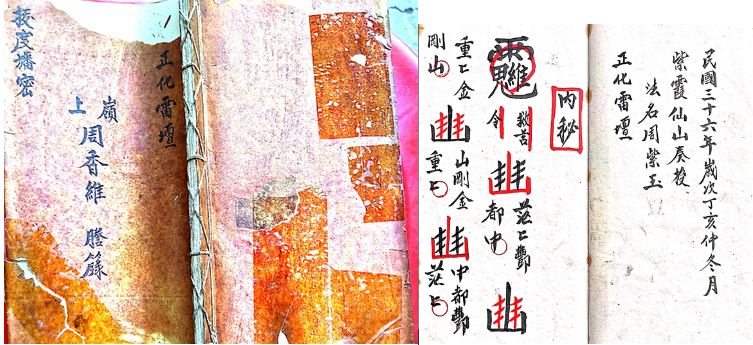 正化雷壇
嶺上周香維謄錄
授度播密
民國三十六年歲次丁亥仲冬月
紫霞仙山奏授
法名周紫玉
正化雷壇
內秘
令
茫〻酆
都中
重〻金
剛山
山剛金
重〻
中都酆
茫〻